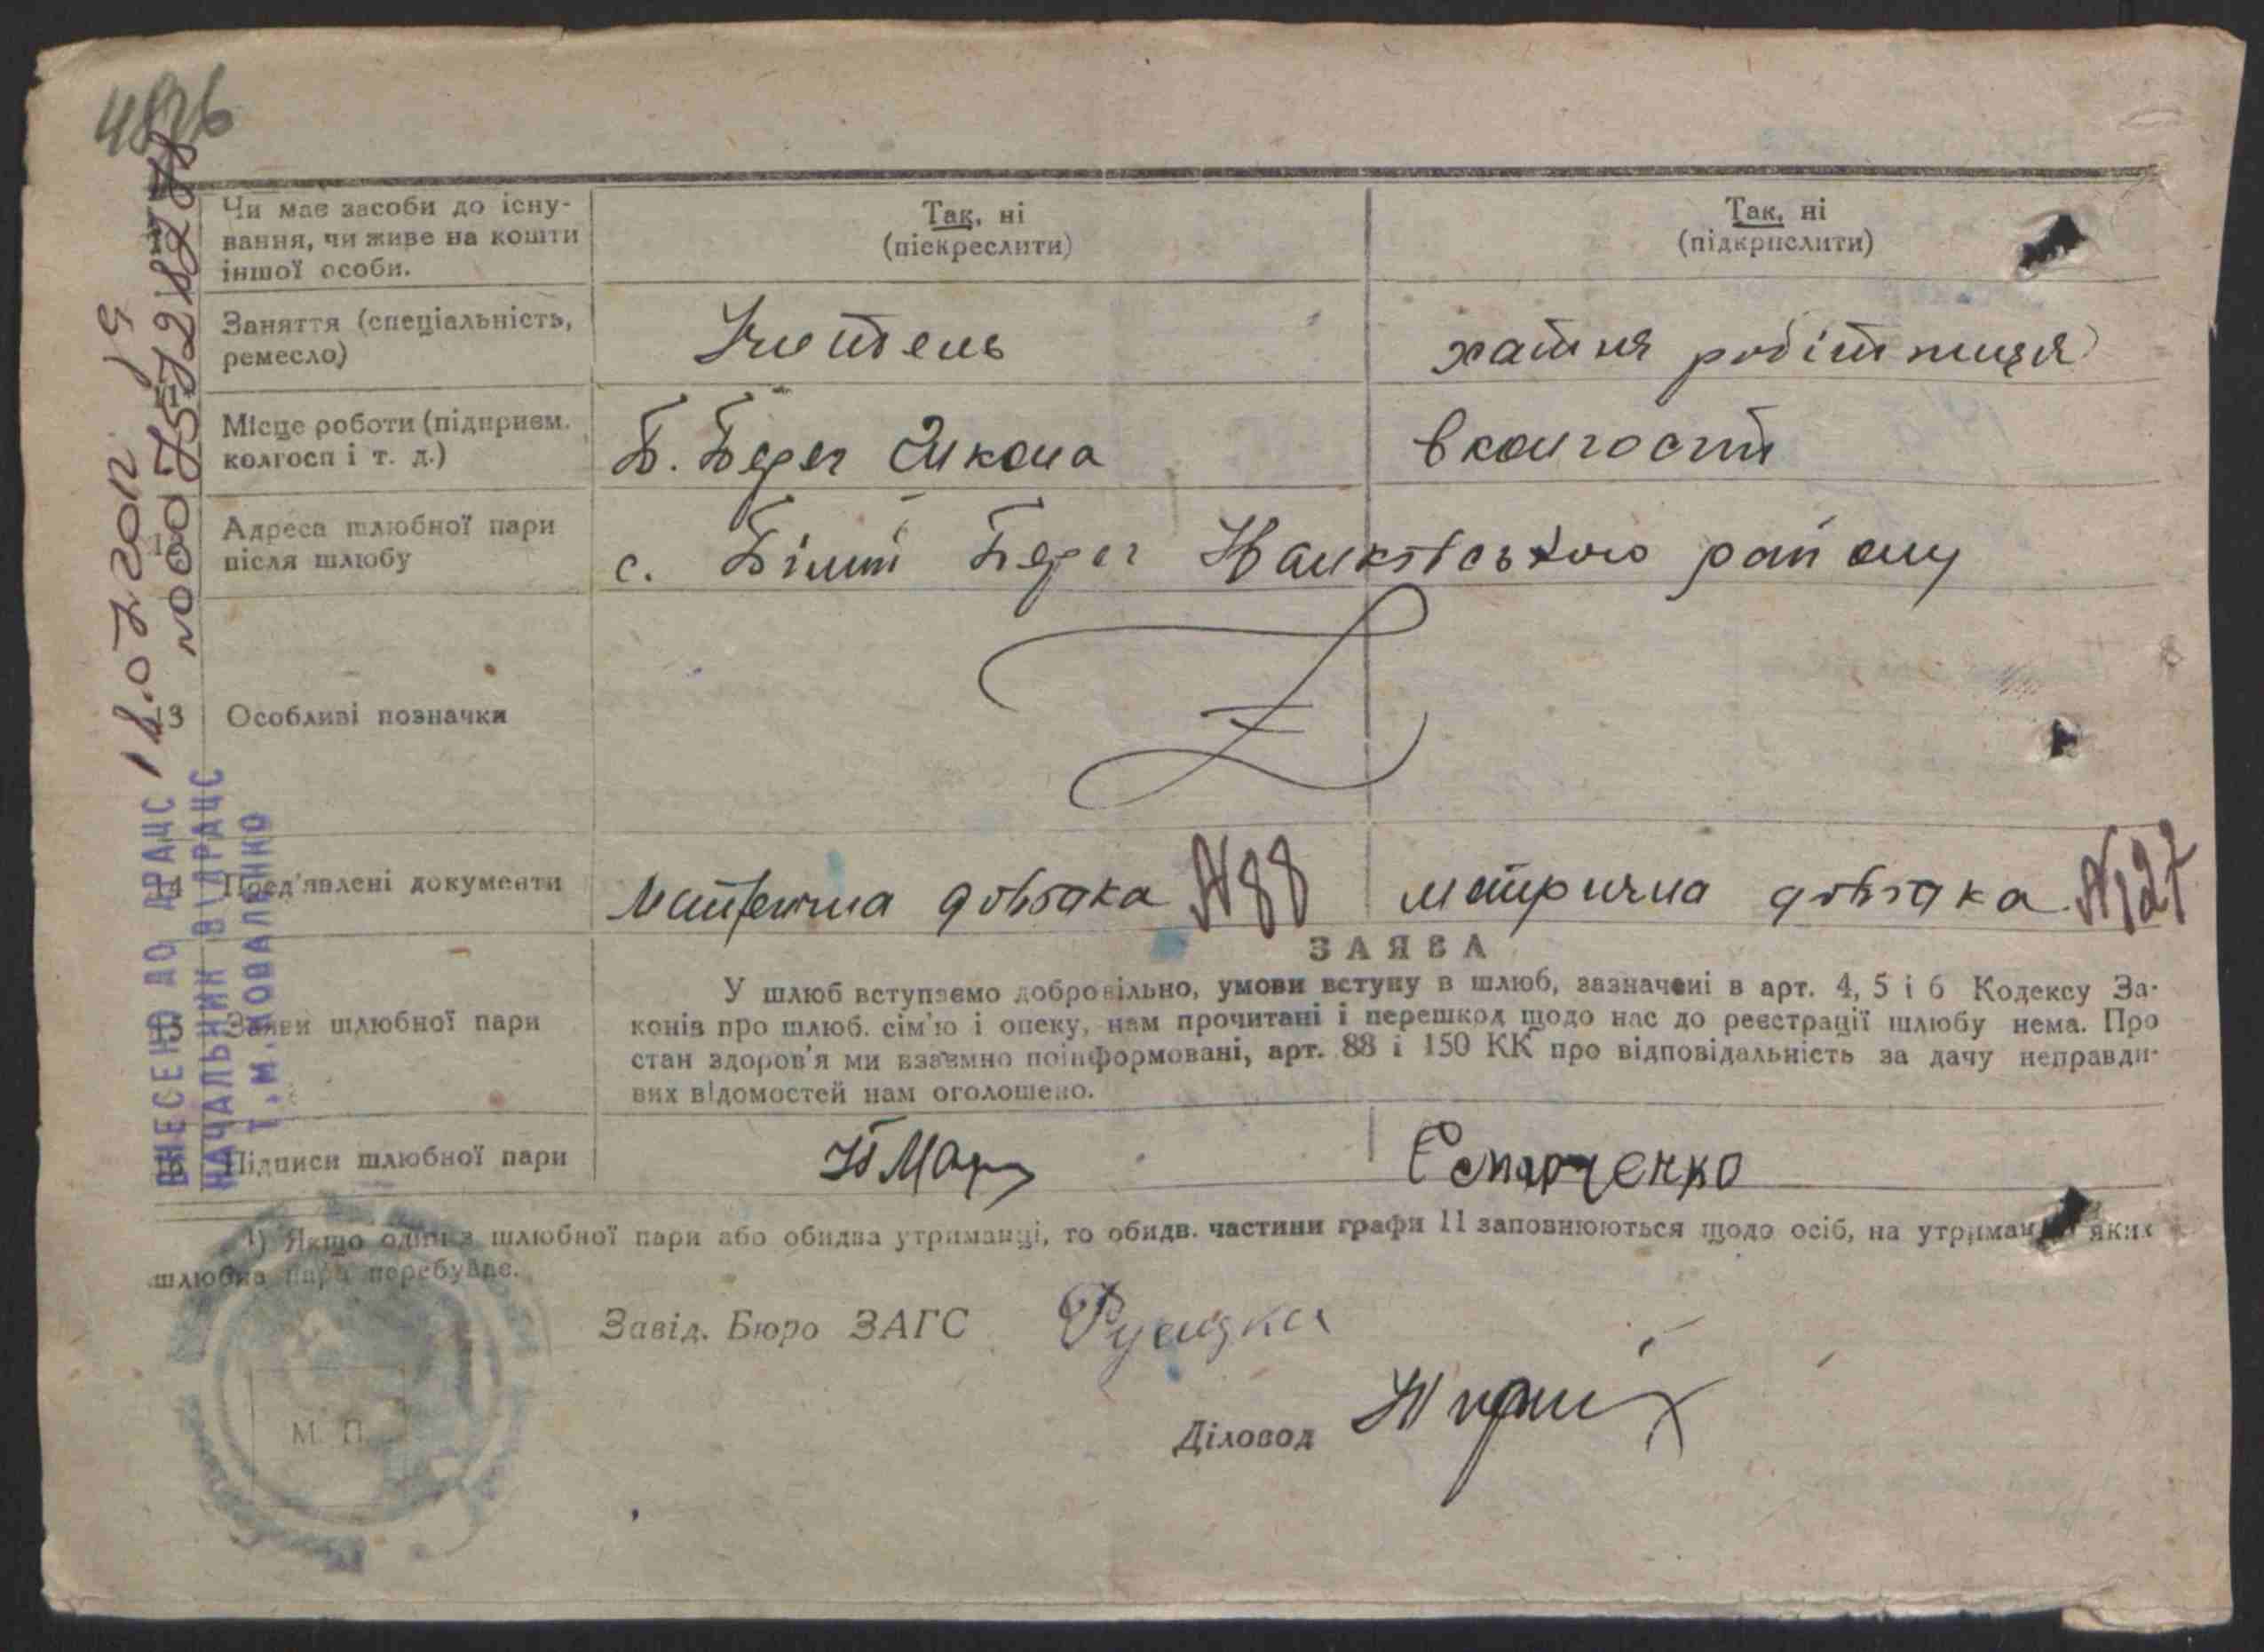 Чи має засоби до існу-
вання, чи живе на кошти
іншої особи.
Так, ні
(піскреслити)
Так, ні
(підкрислити)
Заняття (спеціальність,
ремесло)
Учитель
хатня робітниця
Місце роботи (підприєм.
колгосп і т. д.)
Б. Берег школа
в колгоспі
Адреса шлюбної пари
після шлюбу
с. Білий Берег Іванківського району
13 Особливі позначки
14 Пред'явлені документи
Метрична довідка №88
метрична довідка №127
ЗАЯВА
15 Заяви шлюбної пари
У шлюб вступаємо добровільно, умови вступу в шлюб, зазначені в арт. 4, 5 і 6 Кодексу За-
конів про шлюб. сім'ю і опеку, нам прочитані і перешкод щодо нас до реєстрації шлюбу нема. Про
стан здоров'я ми взаємно поінформовані, арт. 88 і 150 КК про відповідальність за дачу неправди-
вих відомостей нам оголошено.
Підписи шлюбної пари
Єпарченко
1) Якщо один з шлюбної пари або обидва утриманці, то обидв. частини графи 11 заповнюються щодо осіб, на утриманні яких
шлюбна пара перебуває.
Завід. Бюро ЗАГС
Діловод
М. П.
ВНЕСЕНО ДО ДРАЦС
НАЧАЛЬНИК ВІДРАЦС
Т.М.КОВАЛЕНКО